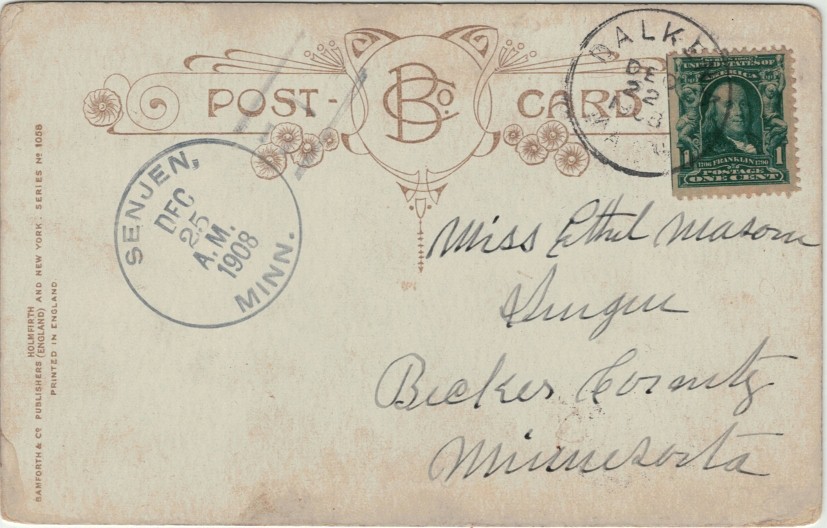 POST-CARD
B Co.
DALK
DEC
22
SERIES 1902
UNITED STATES OF
AMERICA
1 1706 FRANKLIN 1790 1
POSTAGE
ONE CENT
SENJEN,
DEC
25
A.M.
1908
MINN.
Miss Ethel Mason
Becker County
Minnesota
BAMFORTH & Co PUBLISHERS (ENGLAND) AND NEW YORK. SERIES No 1058
HOLMFIRTH
PRINTED IN ENGLAND